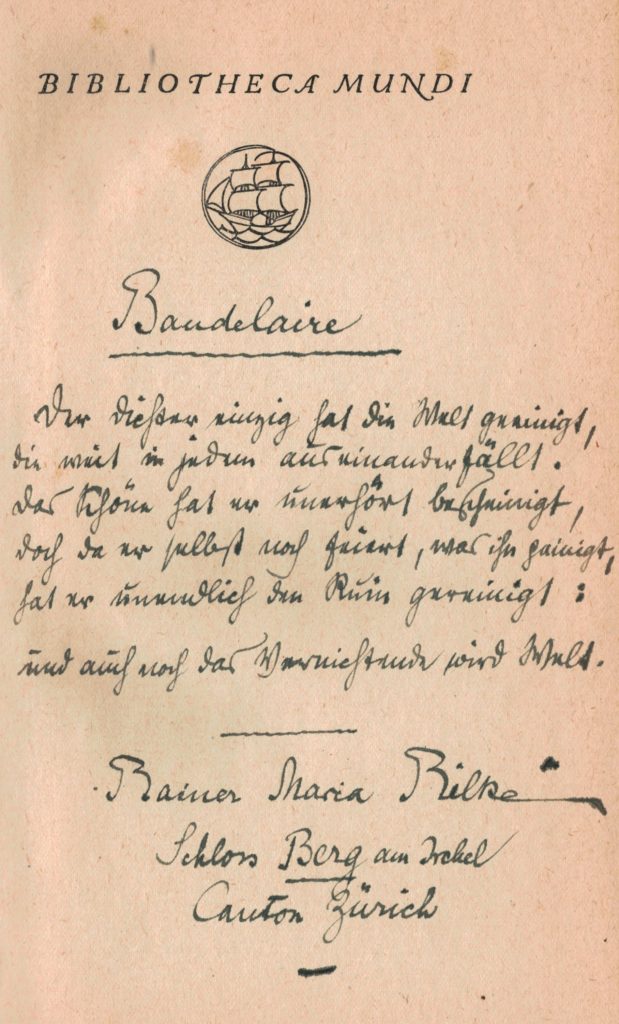 BIBLIOTHECA MUNDI
Baudelaire
Der Dichter einzig hat die Welt geeinigt,
die weit in jedem auseinanderfällt.
Das Schöne hat er unerhört bescheinigt,
doch da er selbst noch feiert, was ihn peinigt,
hat er unendlich den Ruin gereinigt:
und auch noch das Vernichtende wird Welt.
Rainer Maria Rilke
Schloss Berg am Irchel
Canton Zürich